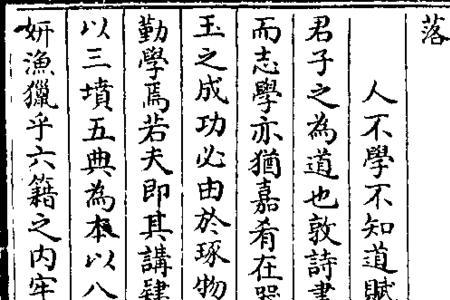 落
人不學不知道賦
君子之為道也敦詩書
而志學亦猶嘉肴在器
玉之成功必由於琢物
勤學焉若夫即其講肄
以三墳五典為本以八
妍漁獵乎六籍之内牢